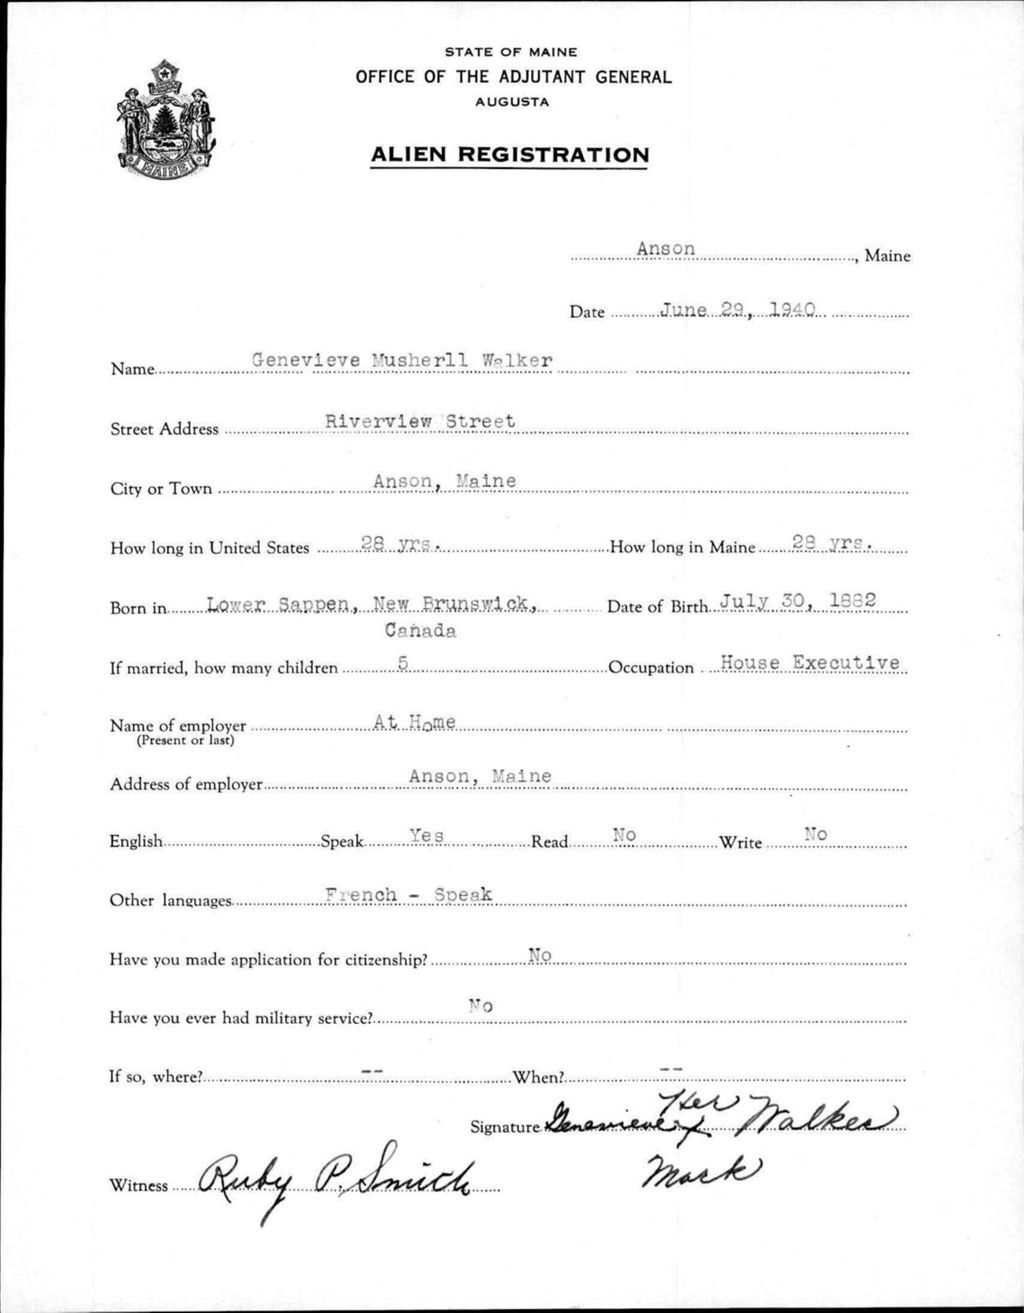 STATE OF MAINE
OFFICE OF THE ADJUTANT GENERAL
AUGUSTA
ALIEN REGISTRATION
MAINE
Anson, Maine
Date June 29, 1940
Name Genevieve Musherll Walker
Street Address Riverview Street
City or Town Anson, Maine
How long in United States 28 yrs. How long in Maine 28 yrs.
Born in Lower Sappen, New Brunswick, Date of Birth July 30, 1882
Canada
If married, how many children 5 Occupation House Executive
Name of employer At Home
(Present or last)
Address of employer Anson, Maine
English Speak Yes Read No Write No
Other languages French - Speak
Have you made application for citizenship? No
Have you ever had military service? No
If so, where? -- When? --
Her
Signature Genevieve X Walker
Mark
Witness Ruby P. Smith